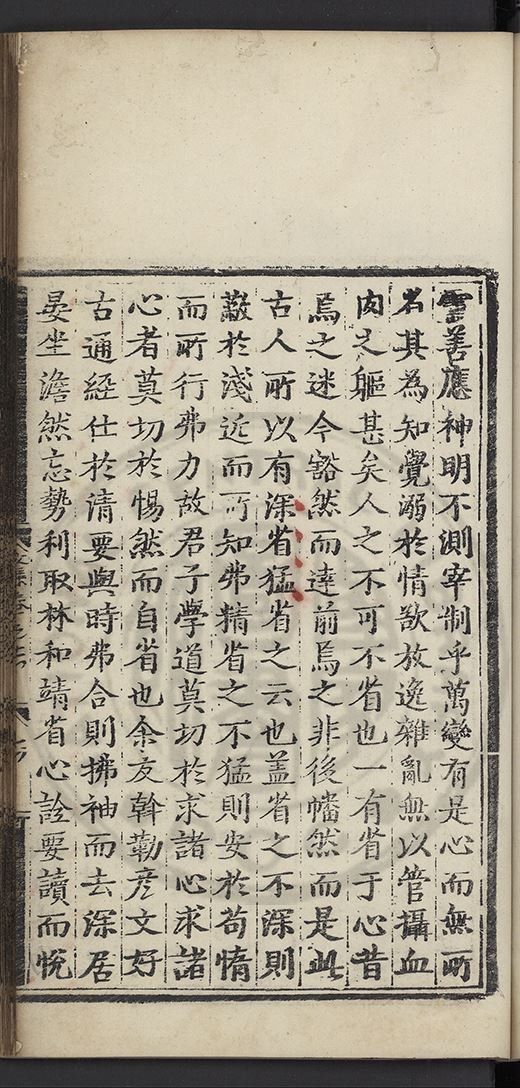 靈善應神明不測宰制乎萬變有是心而無所
名其為知覺溺於情欲放逸雜亂無以管攝血
肉之軀甚矣人之不可不省也一有省于心昔
焉之迷今豁然而達前焉之非後幡然而是此
古人所以有深省猛省之云也盖省之不深則
蔽於淺近而所知弗精省之不猛則安於苟惰
而所行弗力故君子學道莫切於求諸心求諸
心者莫切於惕然而自省也余友斡勒彦文好
古通經仕於清要與時弗合則拂袖而去深居
晏坐澹然忘勢利取林和靖省心詮要讀而悅